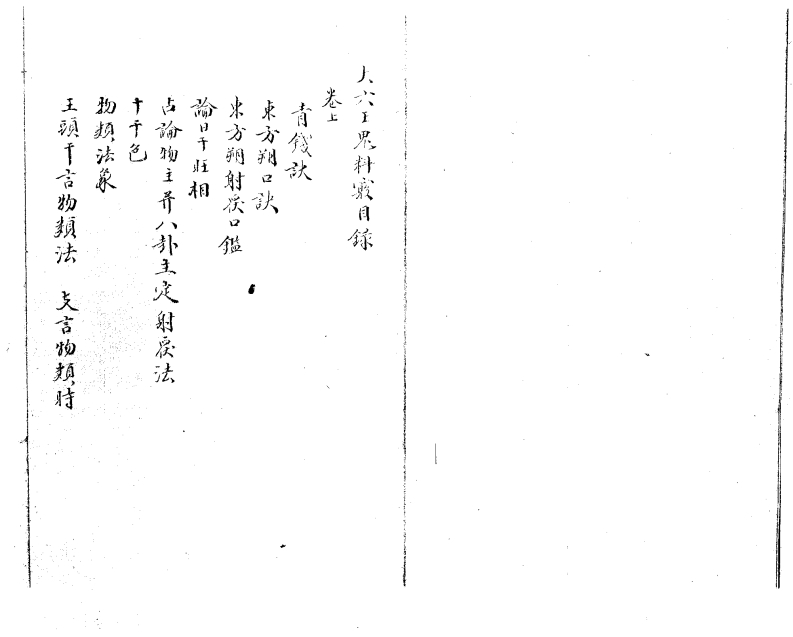 大六壬鬼料竅目録
卷上
青錢訣
東方朔口訣
東方朔射覆口鑑
論日干旺相
占論物主并八卦主定射覆法
十干色
物類法象
五頭干言物類法 支言物類時